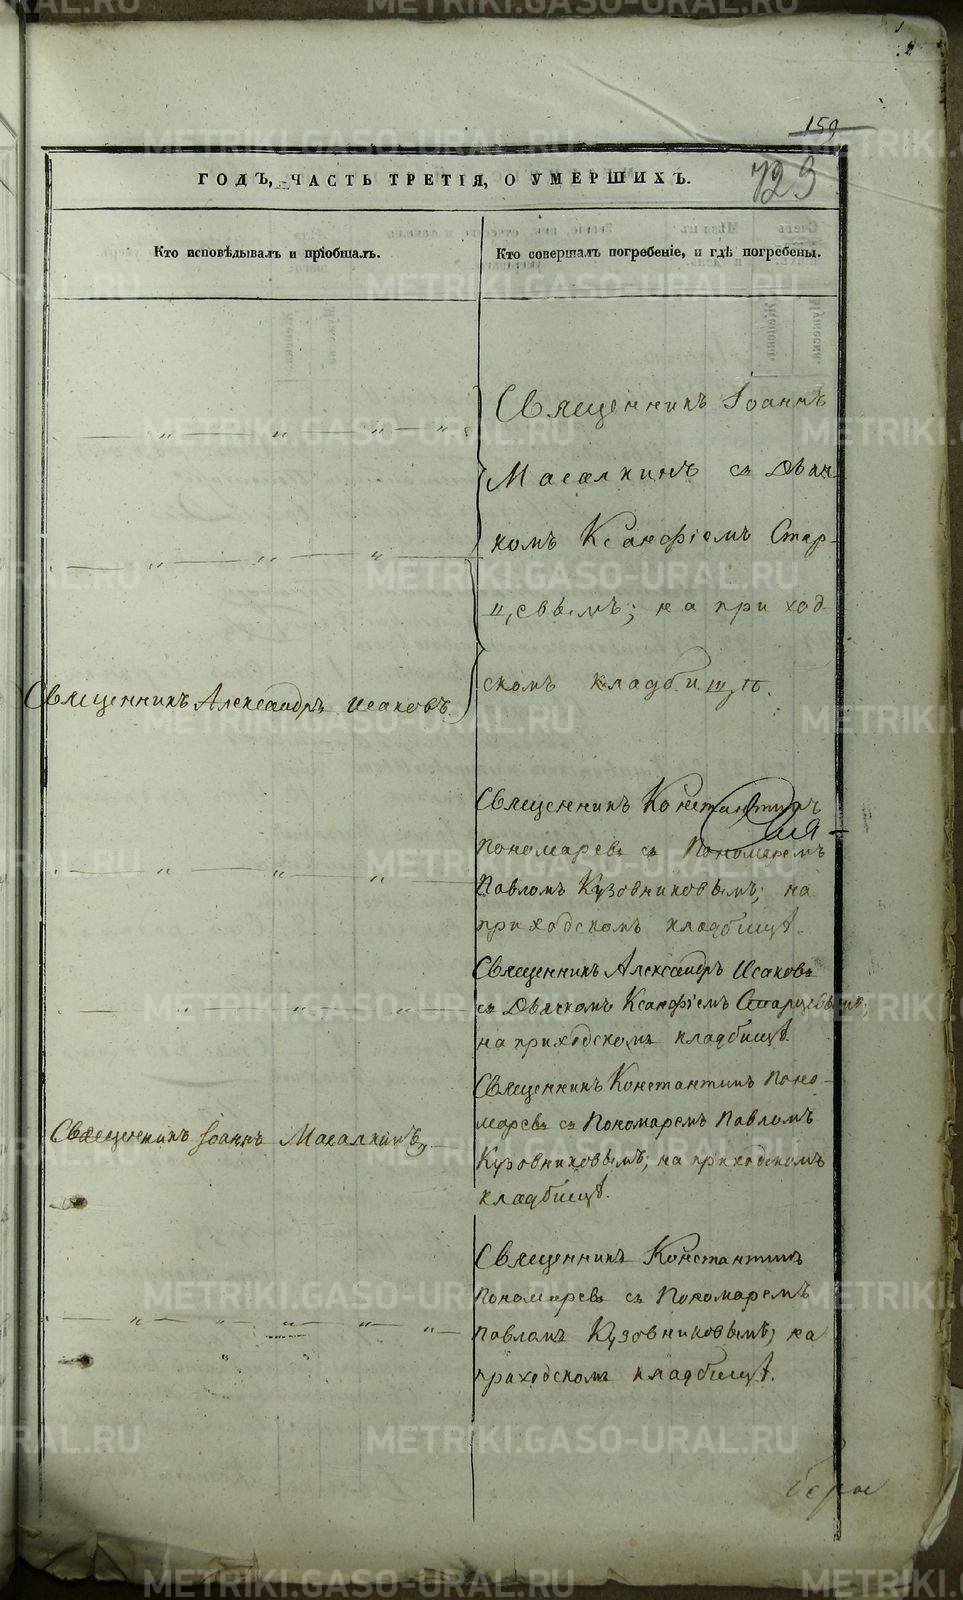 159
723
ГОДЪ, ЧАСТЬ ТРЕТІЯ, О УМЕРШИХЪ.
Кто исповѣдывалъ и пріобщалъ.
Кто совершалъ погребеніе, и гдѣ погребены.
Священникъ Іоаннъ
Масалкинъ съ Дьяч
комъ Ксанфіемъ Стар-
цевымъ; на приход-
скомъ кладбищѣ.
Священникъ Александръ Исаковъ.
Священникъ Константинъ
Пономаревъ съ Пономаремъ
Павломъ Кузовниковымъ; на
приходскомъ кладбищѣ.
Священникъ Александръ Исаковъ
съ Дьячкомъ Ксанфіемъ Старцевымъ;
на приходскомъ кладбищѣ.
Священникъ Константинъ Поно-
маревъ съ Пономаремъ Павломъ
Кузовниковымъ; на приходскомъ
кладбищѣ.
Священникъ Іоаннъ Масалкинъ.
Священникъ Константинъ
Пономаревъ съ Пономаремъ
Павломъ Кузовниковымъ; на
приходскомъ кладбищѣ.
METRIKI.GASO-URAL.RU